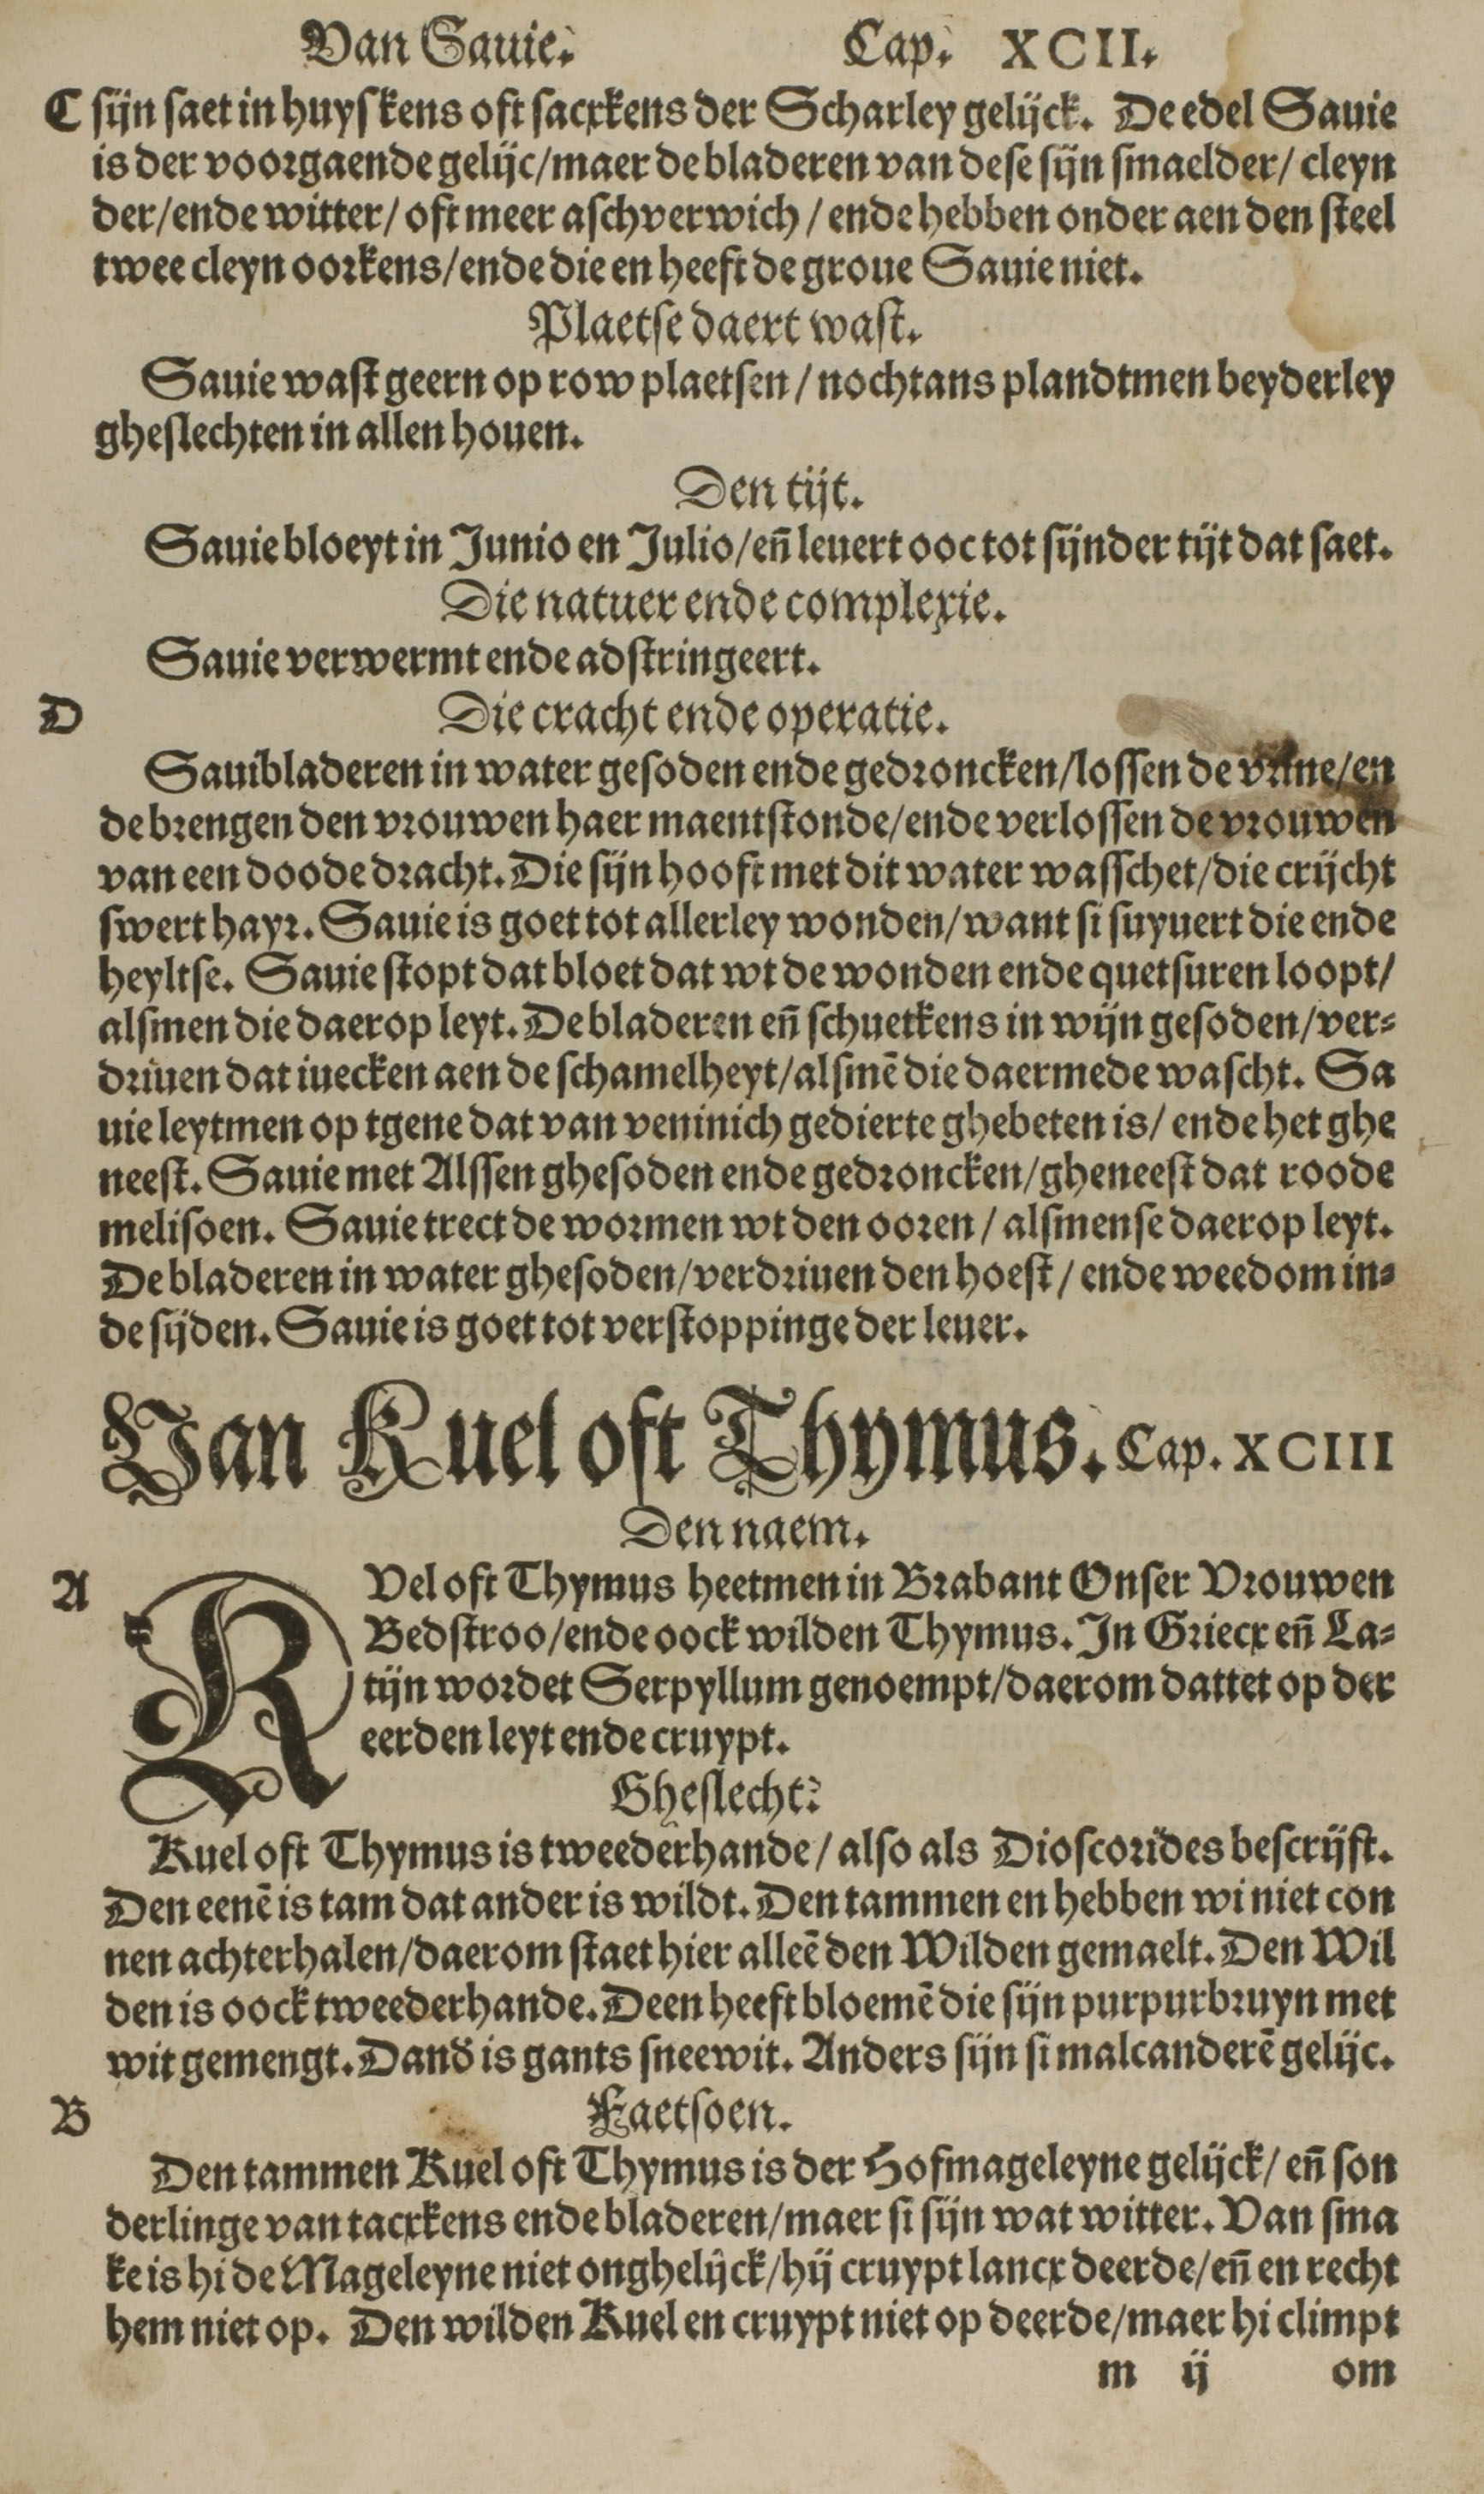 Van Sauie. Cap. XCII.
C sijn saet in huyskens oft sacxkens der Scharley gelijck. De edel Sauie
is der voorgaende gelijc/maer de bladeren van dese sijn smaelder/ cleyn
der/ende witter/ oft meer aschverwich/ ende hebben onder aen den steel
twee cleyn oorkens/ende die en heeft de groue Sauie niet.
Plaetse daert wast.
Sauie wast geern op row plaetsen/ nochtans plandtmen beyderley
gheslechten in allen houen.
Den tijt.
Sauie bloeyt in Junio en Julio/en̄ leuert ooc tot sijnder tijt dat saet.
Die natuer ende complexie.
Sauie verwermt ende adstringeert.
D Die cracht ende operatie.
Sauibladeren in water gesoden ende gedroncken/lossen de vrine/en
de brengen den vrouwen haer maentstonde/ende verlossen de vrouwen
van een doode dracht. Die sijn hooft met dit water wasschet/die crijcht
swert hayr. Sauie is goet tot allerley wonden/want si suyuert die ende
heyltse. Sauie stopt dat bloet dat wt de wonden ende quetsuren loopt/
alsmen die daer op leyt. De bladeren en̄ schuetkens in wijn gesoden/ver-
driuen dat iuecken aen de schamelheyt/alsmē die daermede wascht. Sa
uie leytmen op tgene dat van veninich gedierte ghebeten is/ ende het ghe
neest. Sauie met Alssen ghesoden ende gedroncken/gheneest dat roode
melisoen. Sauie trect de wormen wt den ooren/ alsmense daer op leyt.
De bladeren in water ghesoden/verdriuen den hoest/ ende weedom in-
de sijden. Sauie is goet tot verstoppinge der leuer.
Van Kuel oft Thymus. Cap. XCIII
Den naem.
A KVel oft Thymus heetmen in Brabant Onser Vrouwen
Bedstroo/ende oock wilden Thymus. In Griecx en̄ La-
tijn wordet Serpyllum genoempt/daerom dattet op der
eerden leyt ende cruypt.
Gheslecht:
Kuel oft Thymus is tweederhande/ also als Dioscorides bescrijft.
Den eenē is tam dat ander is wildt. Den tammen en hebben wi niet con
nen achterhalen/daerom staet hier alleē den Wilden gemaelt. Den Wil
den is oock tweederhande. Deen heeft bloemē die sijn purpurbruyn met
wit gemengt. Dand̄ is gants sneewit. Anders sijn si malcanderē gelijc.
B Faetsoen.
Den tammen Kuel oft Thymus is der Hofmageleyne gelijck/ en̄ son
derlinge van tacxkens ende bladeren/maer si sijn wat witter. Van sma
ke is hi de Mageleyne niet onghelijck/hij cruypt lancx deerde/en̄ en recht
hem niet op. Den wilden Kuel en cruypt niet op deerde/maer hi climpt
m ij om